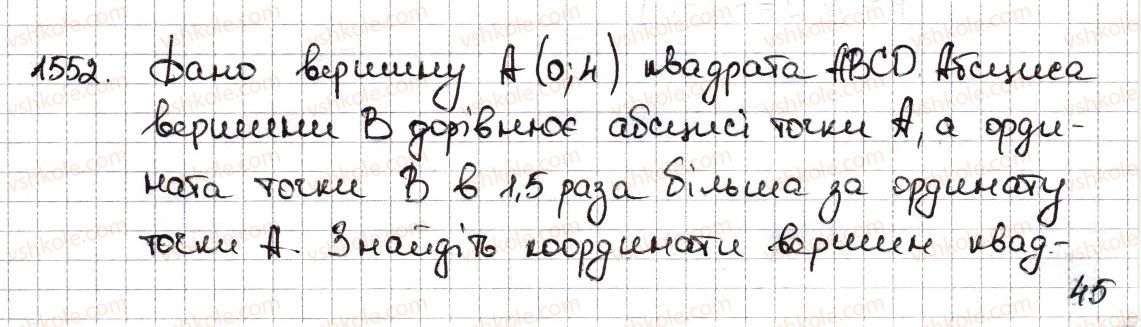 1552. Дано вершину А(0;4) квадрата ABCD. Абсциса
вершини В дорівнює абсцисі точки А, а орди-
ната точки В в 1,5 раза більша за ординату
точки А. Знайдіть координати вершин квад-
45